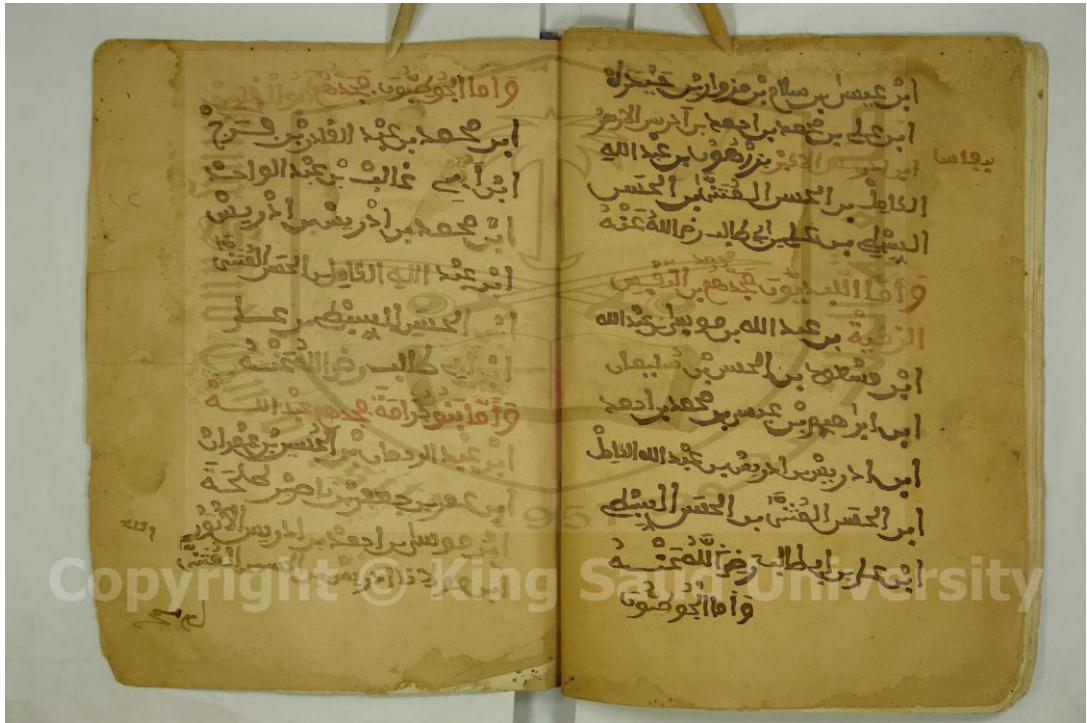 ابن عيسى بن سلام بن مزوار بن حيدرة
ابن علي بن محمد بن احمد بن ادريس الازهر
ابن ادريس الاكبر بزرهون بن عبد الله
بفاس
الكامل بن الحسن المثنى بن الحسن
السبط بن علي بن ابي طالب رضي الله عنه
وأما فجدهم محمد بن
بن عبد الله بن موسى بن عبد الله
ابن بن الحسن بن سليمان
ابن ابراهيم بن عيسى بن محمد بن احمد
ابن ادريس بن ادريس بن عبد الله الكامل
ابن الحسن المثنى بن الحسن السبط
ابن علي بن ابي طالب رضي الله عنه
وأما الجوطيون
وأما الجوطيون فجدهم
ابن محمد بن عبد القادر بن فرج
ابن أبي غالب بن عبد الواحد
ابن محمد بن ادريس بن ادريس
ابن عبد الله الكامل بن الحسن المثنى
ابن الحسن السبط بن علي
ابن أبي طالب رضي الله عنه
وأما بنو فجدهم عبد الله
ابن عبد الرحمان بن الحسن بن عمران
ابن عمر بن جعفر بن ناصر بن طلحة
ابن موسى بن احمد بن ادريس الأنور
ابن مولانا ادريس بن الحسن المثنى
Copyright © King Saud University
1957